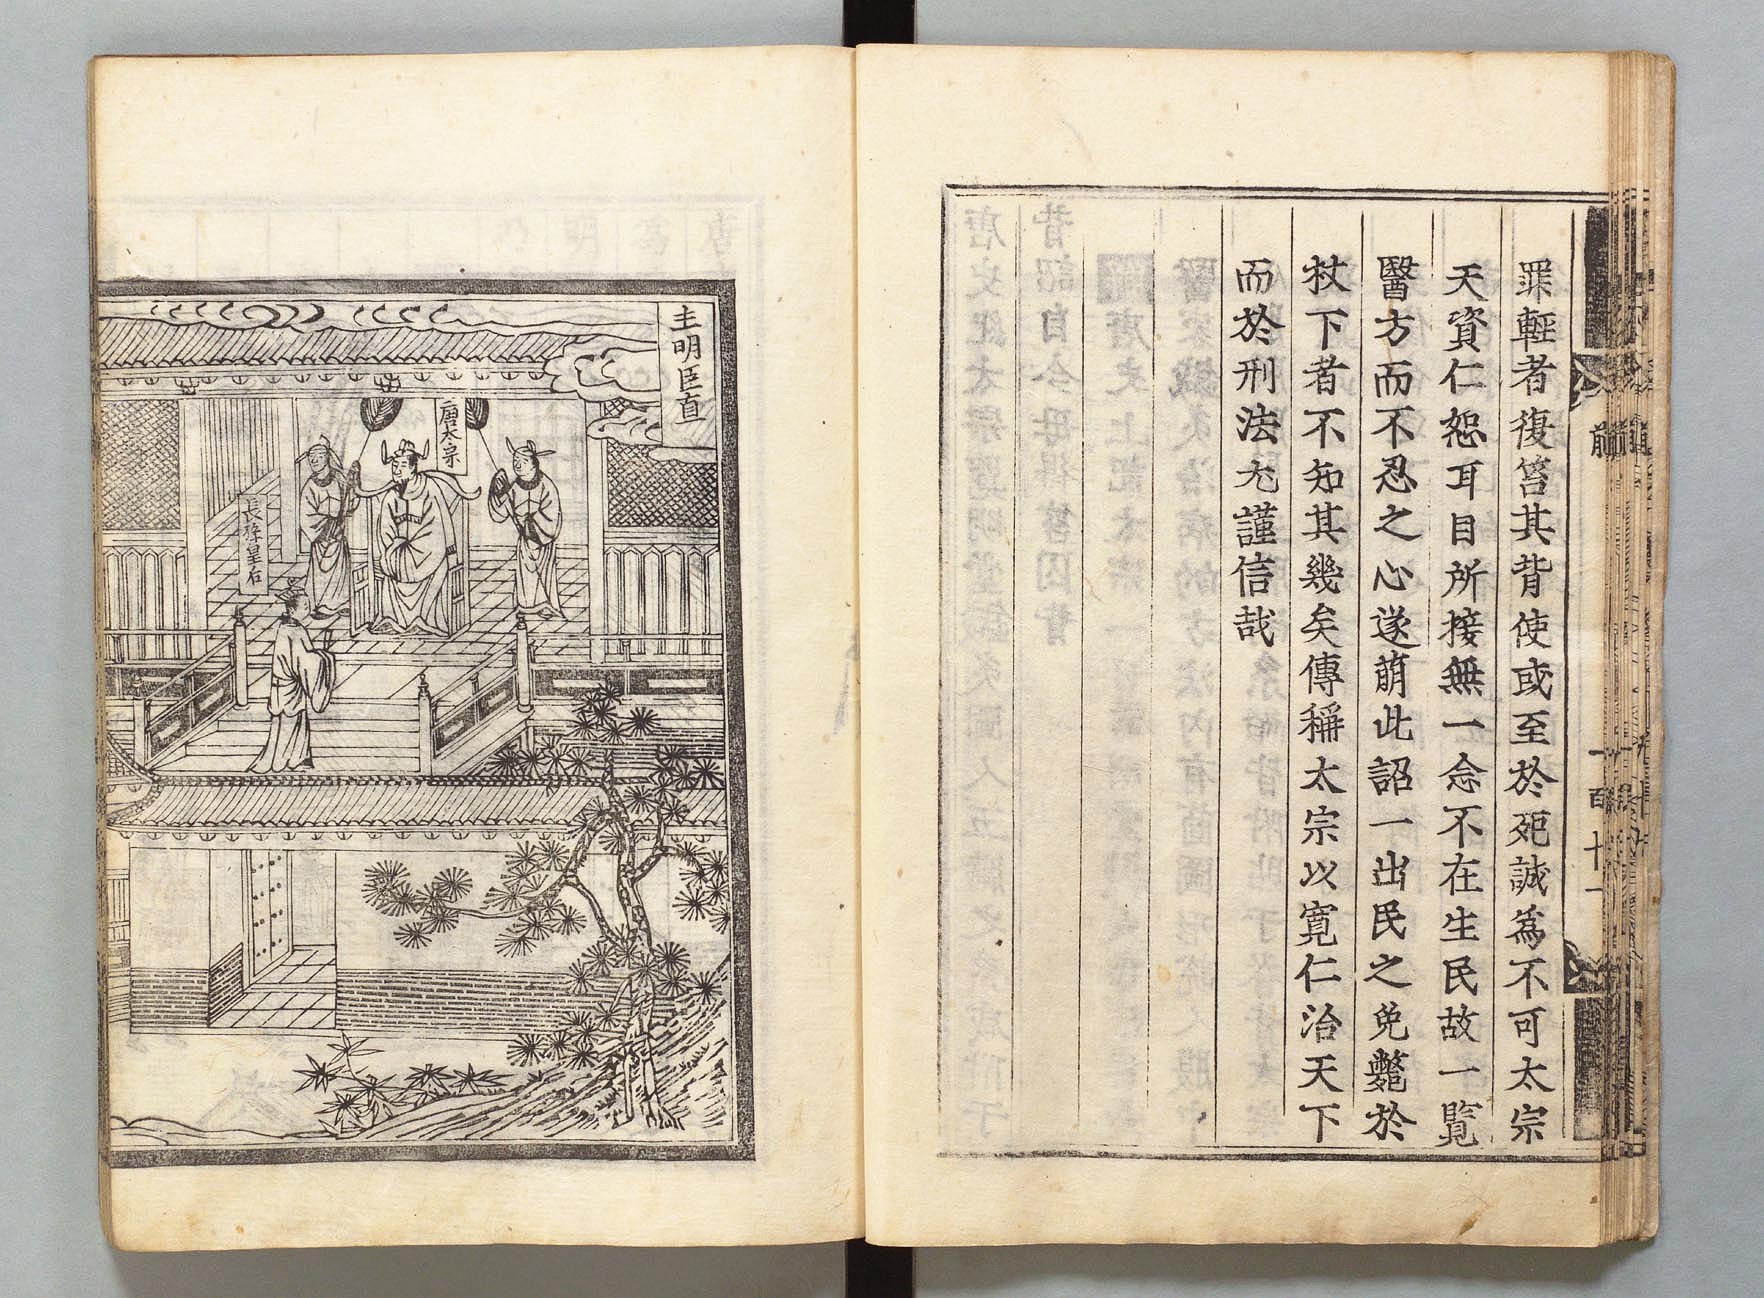 罪輕者復笞其背使或至於死誠為不可太宗
天資仁恕耳目所接無一念不在生民故一覽
醫方而不忍之心遂萠此詔一出民之免斃於
杖下者不知其幾矣傳稱太宗以寬仁治天下
而於刑法尤謹信哉
前
一百十一
主明臣直
唐太宗
長孫皇后